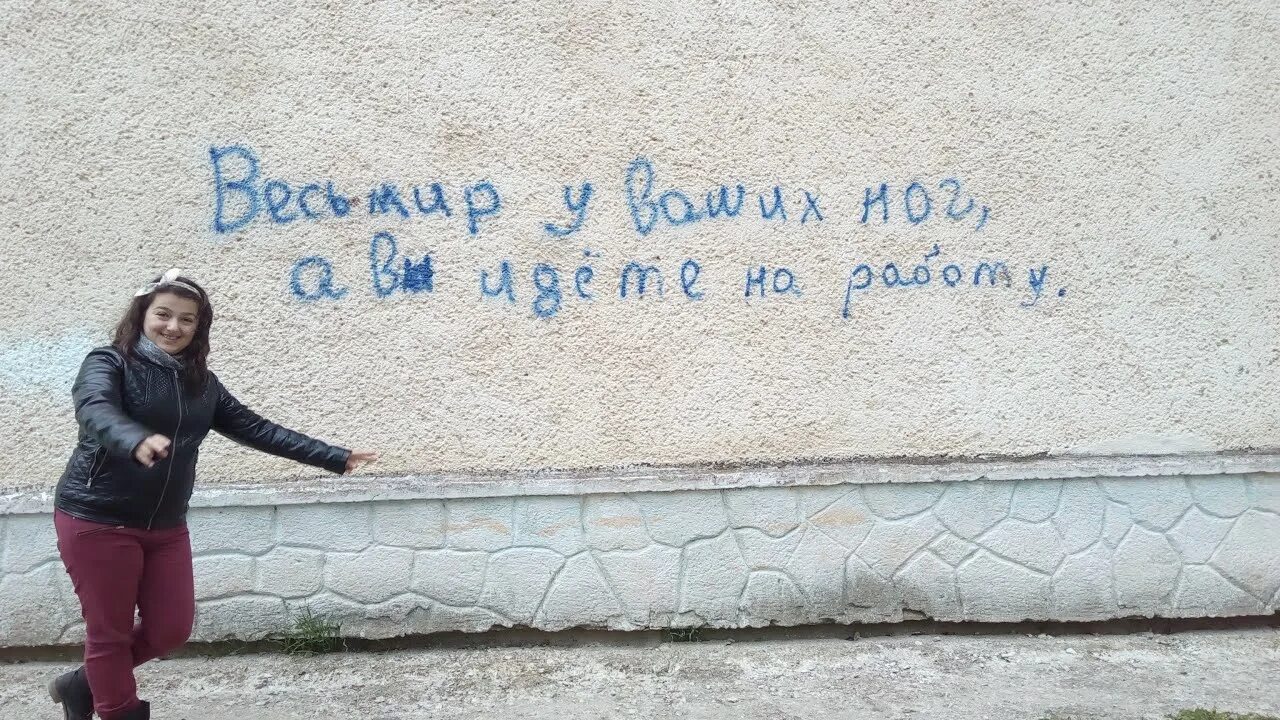 Весь мир у ваших ног,
а вы идёте на работу.